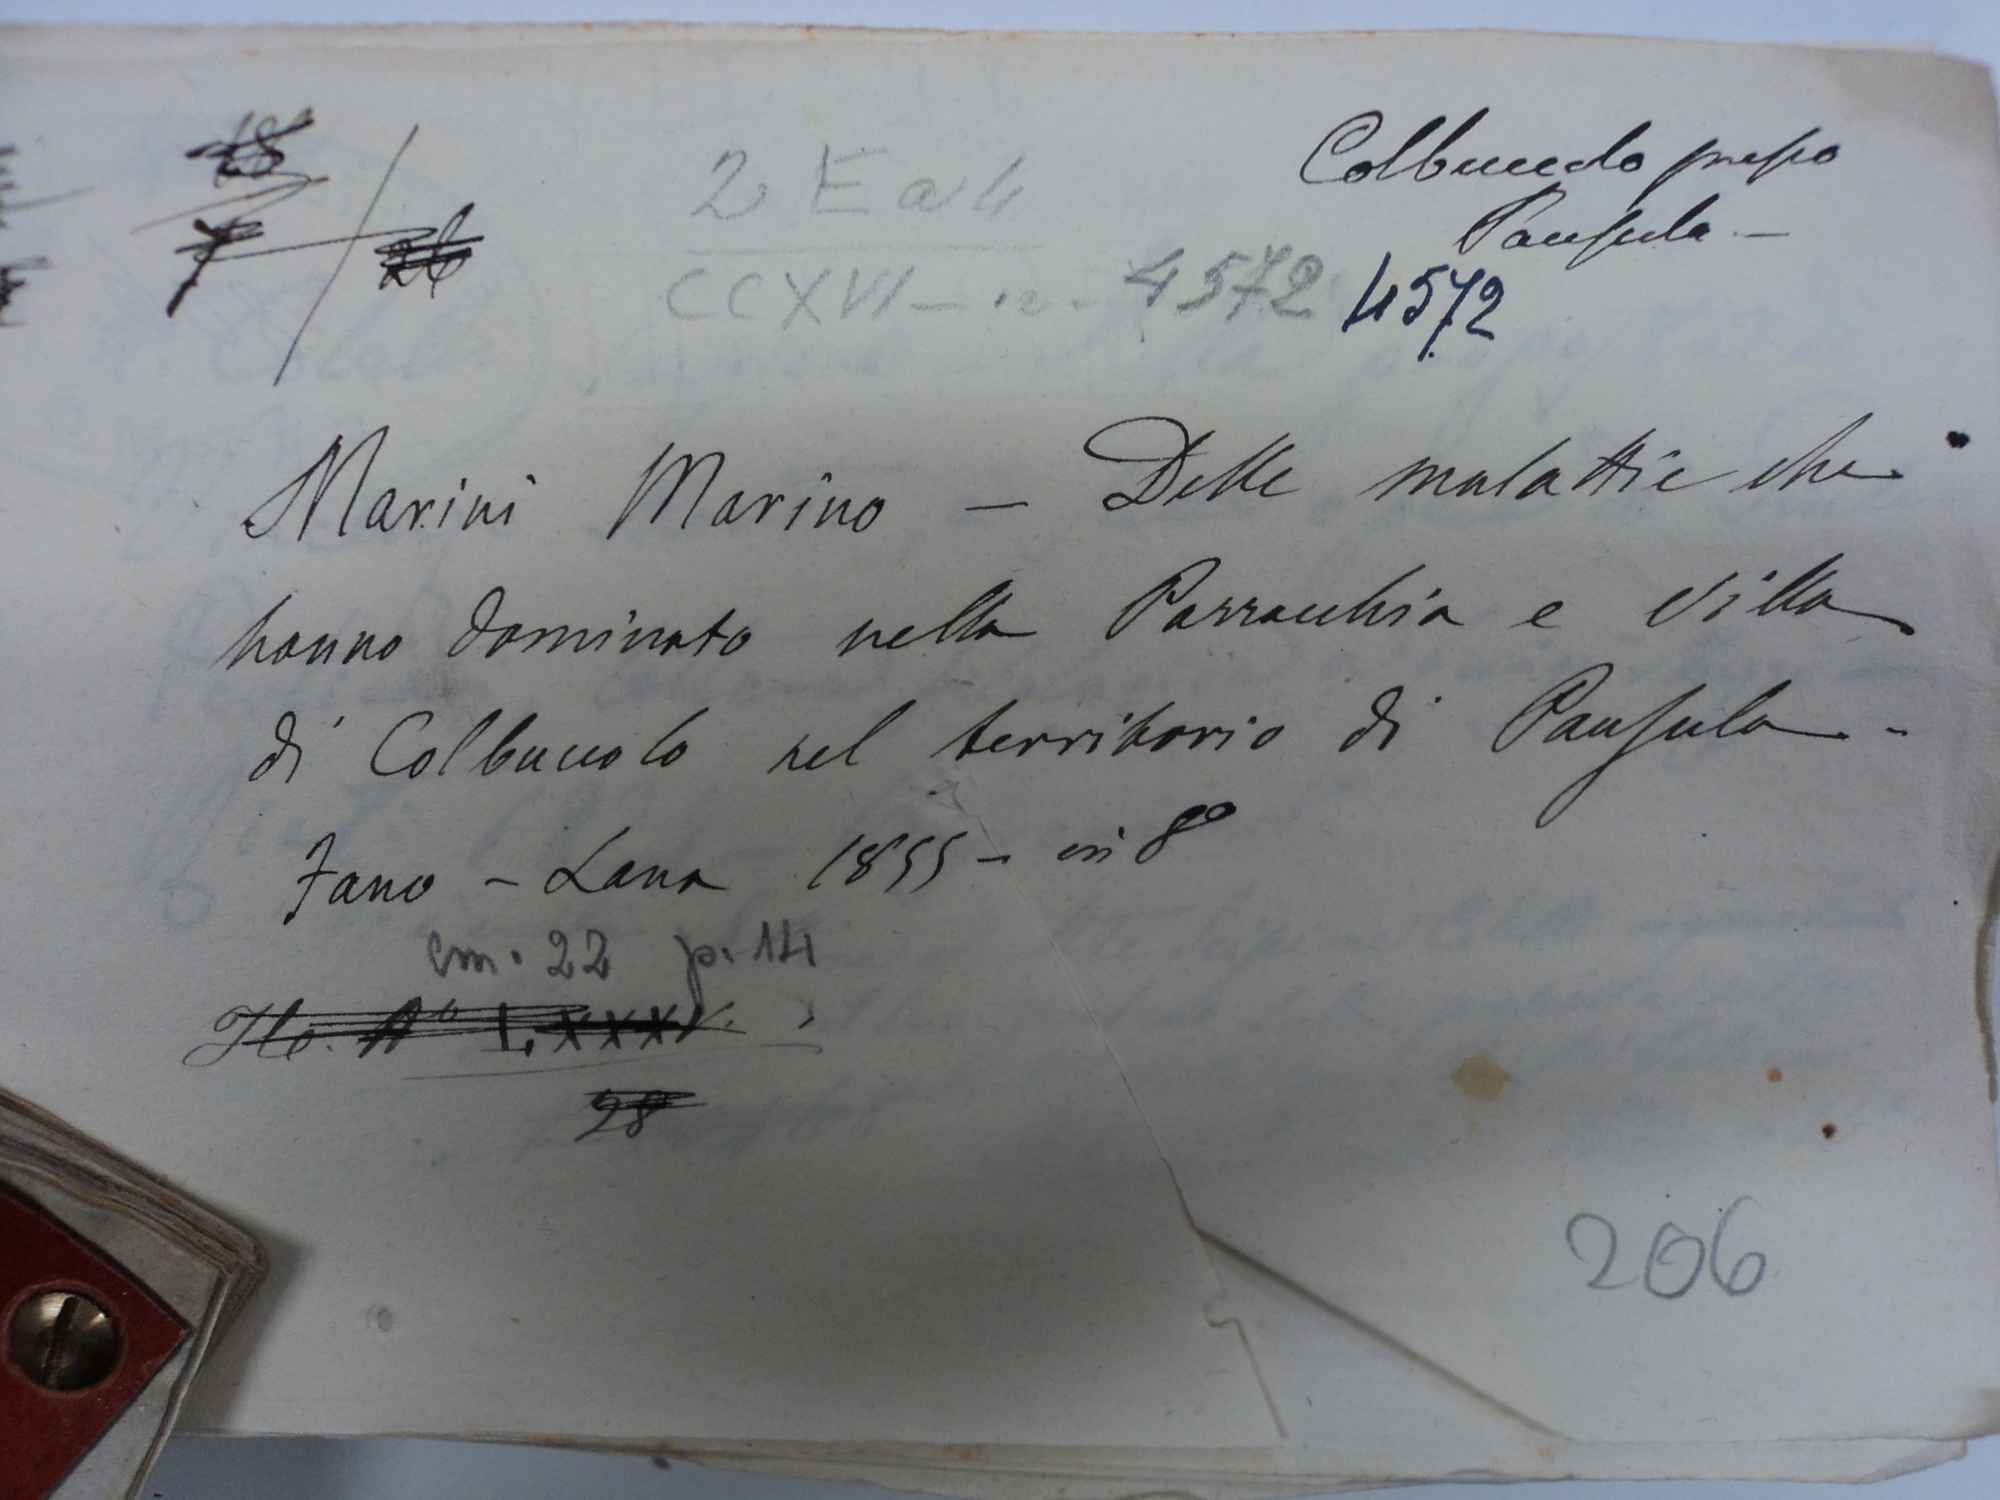 Colbuccolo presso
Pausula -
2 E a 4
CCXVI - n. - 4572
4572
Marini Marino - Delle malattie che
hanno dominato nella Parrocchia e Villa
di Colbuccolo nel territorio di Pausula -
Fano - Lana 1855 - in 8º
cm. 22 p. 14
28
206